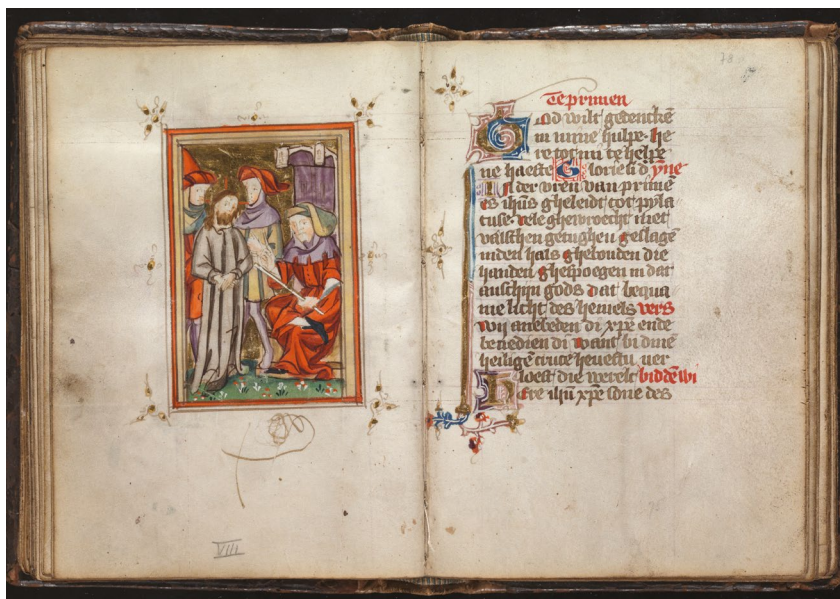 VIII
78
Te primen
God wilt gedenckē
in mine hulpe. he
re tot mi te helpe
ne haeste Glorie si d̄ yn̄e
In der vren van primē
es ih̄us gheleidt tot pyla
tuse. vele ghewroecht met
valschen getughen geslagē
inden hals ghebonden die
handen ghespogen in dat
anschijn gods dat bequa
me licht des hemels vers
Wij anebeden di xp̄e ende
benedien di want bi dine
heiligē cruce heuestu ver
loest die werelt biddē wi
Here ih̄u xp̄e sone des